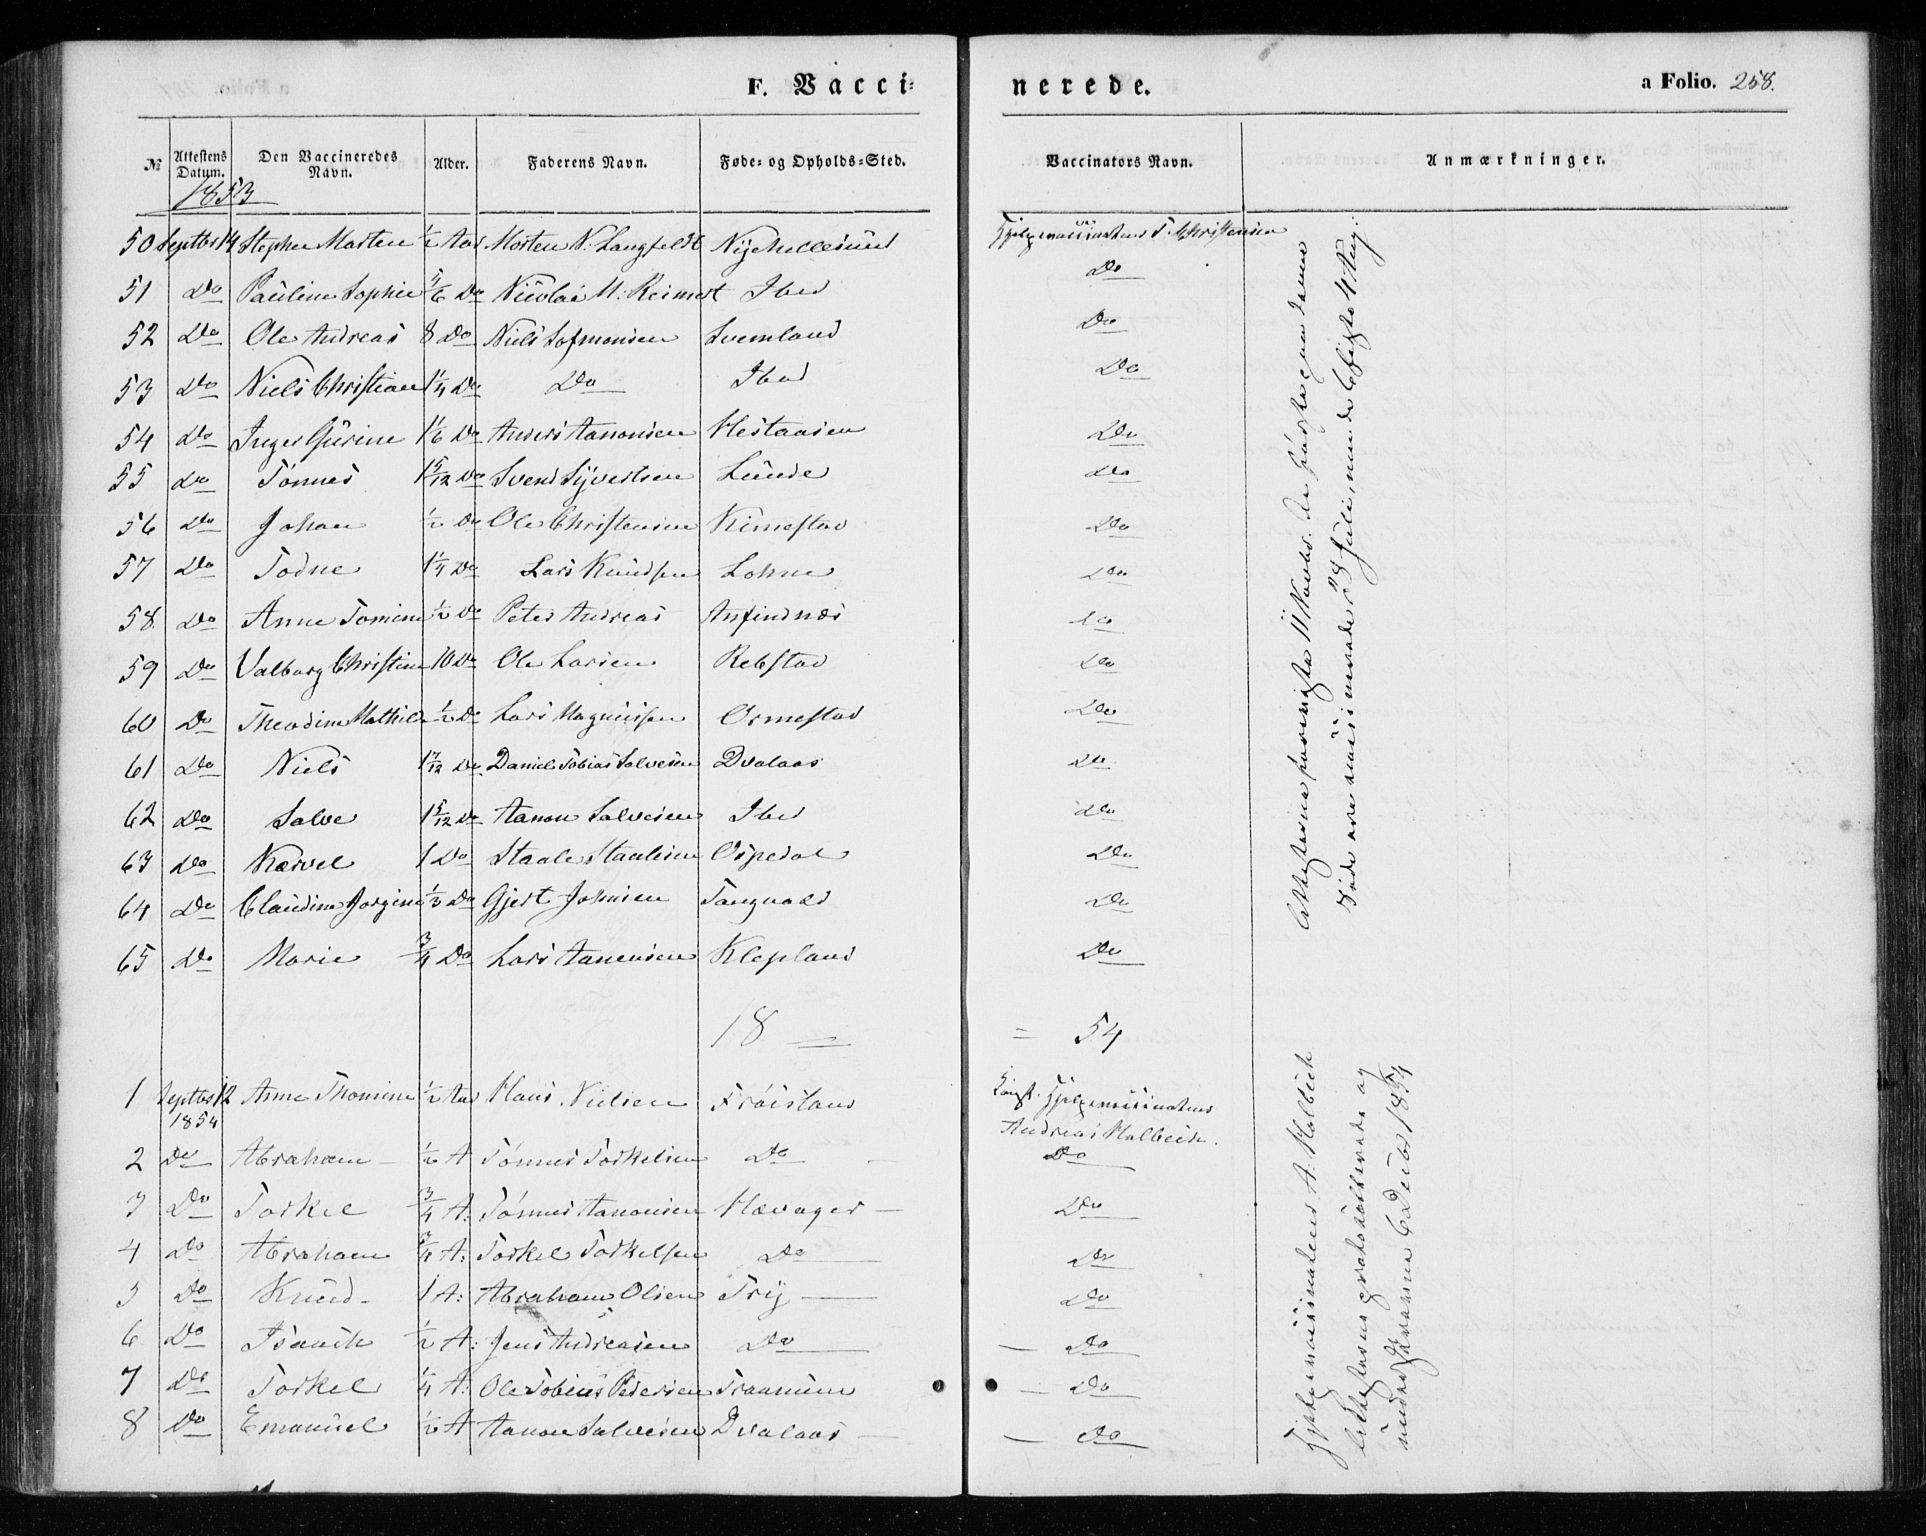 F. Vacci-
nerede.
a Folio. 258.
№ | Attestens Datum. | Den Vaccineredes Navn. | Alder. | Faderens Navn. | Føde- og Opholds-Sted. | Vaccinators Navn. | Anmærkninger.
1853
50 Septbr 14 Stephen Morten ½ Aar Morten N. Langfeldt Nye Hellesund Hjelpevaccinateur T. Christensen
51 Do Pauline Sophie 5/6 Do Nicolai M. Reimert Ibid Do
52 Do Ole Andreas 8 Do Niels Sofmonsen Svemland Do
53 Do Niels Christian 1¼ Do Do Ibid Do
54 Do Inger Gurine 1 1/6 Do Anders Aanonsen Hestaasen Do
55 do Tønnes 1 5/12 Do Svend Syvertsen Lunde do
56 Do Johan ½ Do Ole Christensen Rimestad Do
57 Do Todne 1¼ Do Lars Knudsen Lohne Do
58. Do Anne Tomine ½ Do Peter Andreas Anfindnæs Do
59 Do Valborg Christine 10 Do Ole Larsen Rebstad Do
60 Do Theodine Mathilde ½ Do Lars Magnussen Ormestad Do
61 Do Niels 1 7/12 Do Daniel Tobias Salvesen Dvalaas Do
62 Do Salve 1 5/12 Do Aanon Salvesen Ibid Do
63 Do Karvel 1 Do Staale Staalesen Ospedal Do
64 Do Claudine Jorgine ½ Do Gjert Johnsen Tangvald Do
65 Do Marie ¾ Do Lars Aanensen Klepland Do
18 = 54
1 Septbr 12 1854 Anne Thomine ½ Aar Hans Nielsen Frøisland Const. Hjelpevaccinateur
Andreas Holbeck.
2 Do Abraham ½ A Tønnes Torkelsen Do Do
3 Do Torkel ¾ A: Tønnes Aanonsen Hævager Do
4 Do Abraham ¾ A: Torkel Torkelsen Do Do
5 Do Knud 1 A: Abraham Olsen Try Do
6 Do Isaach ½ A: Jens Andreasen Do Do
7 Do Torkel ¼ A: Ole Tobias Pedersen Traanum Do
8 Do Emanuel ½ A Aanon Salvesen Dvalaas Do
Attesterne foreviste 11 Novbr.
Hjelpevaccinateur A. Holbech
Attester
6 Decbr 1854